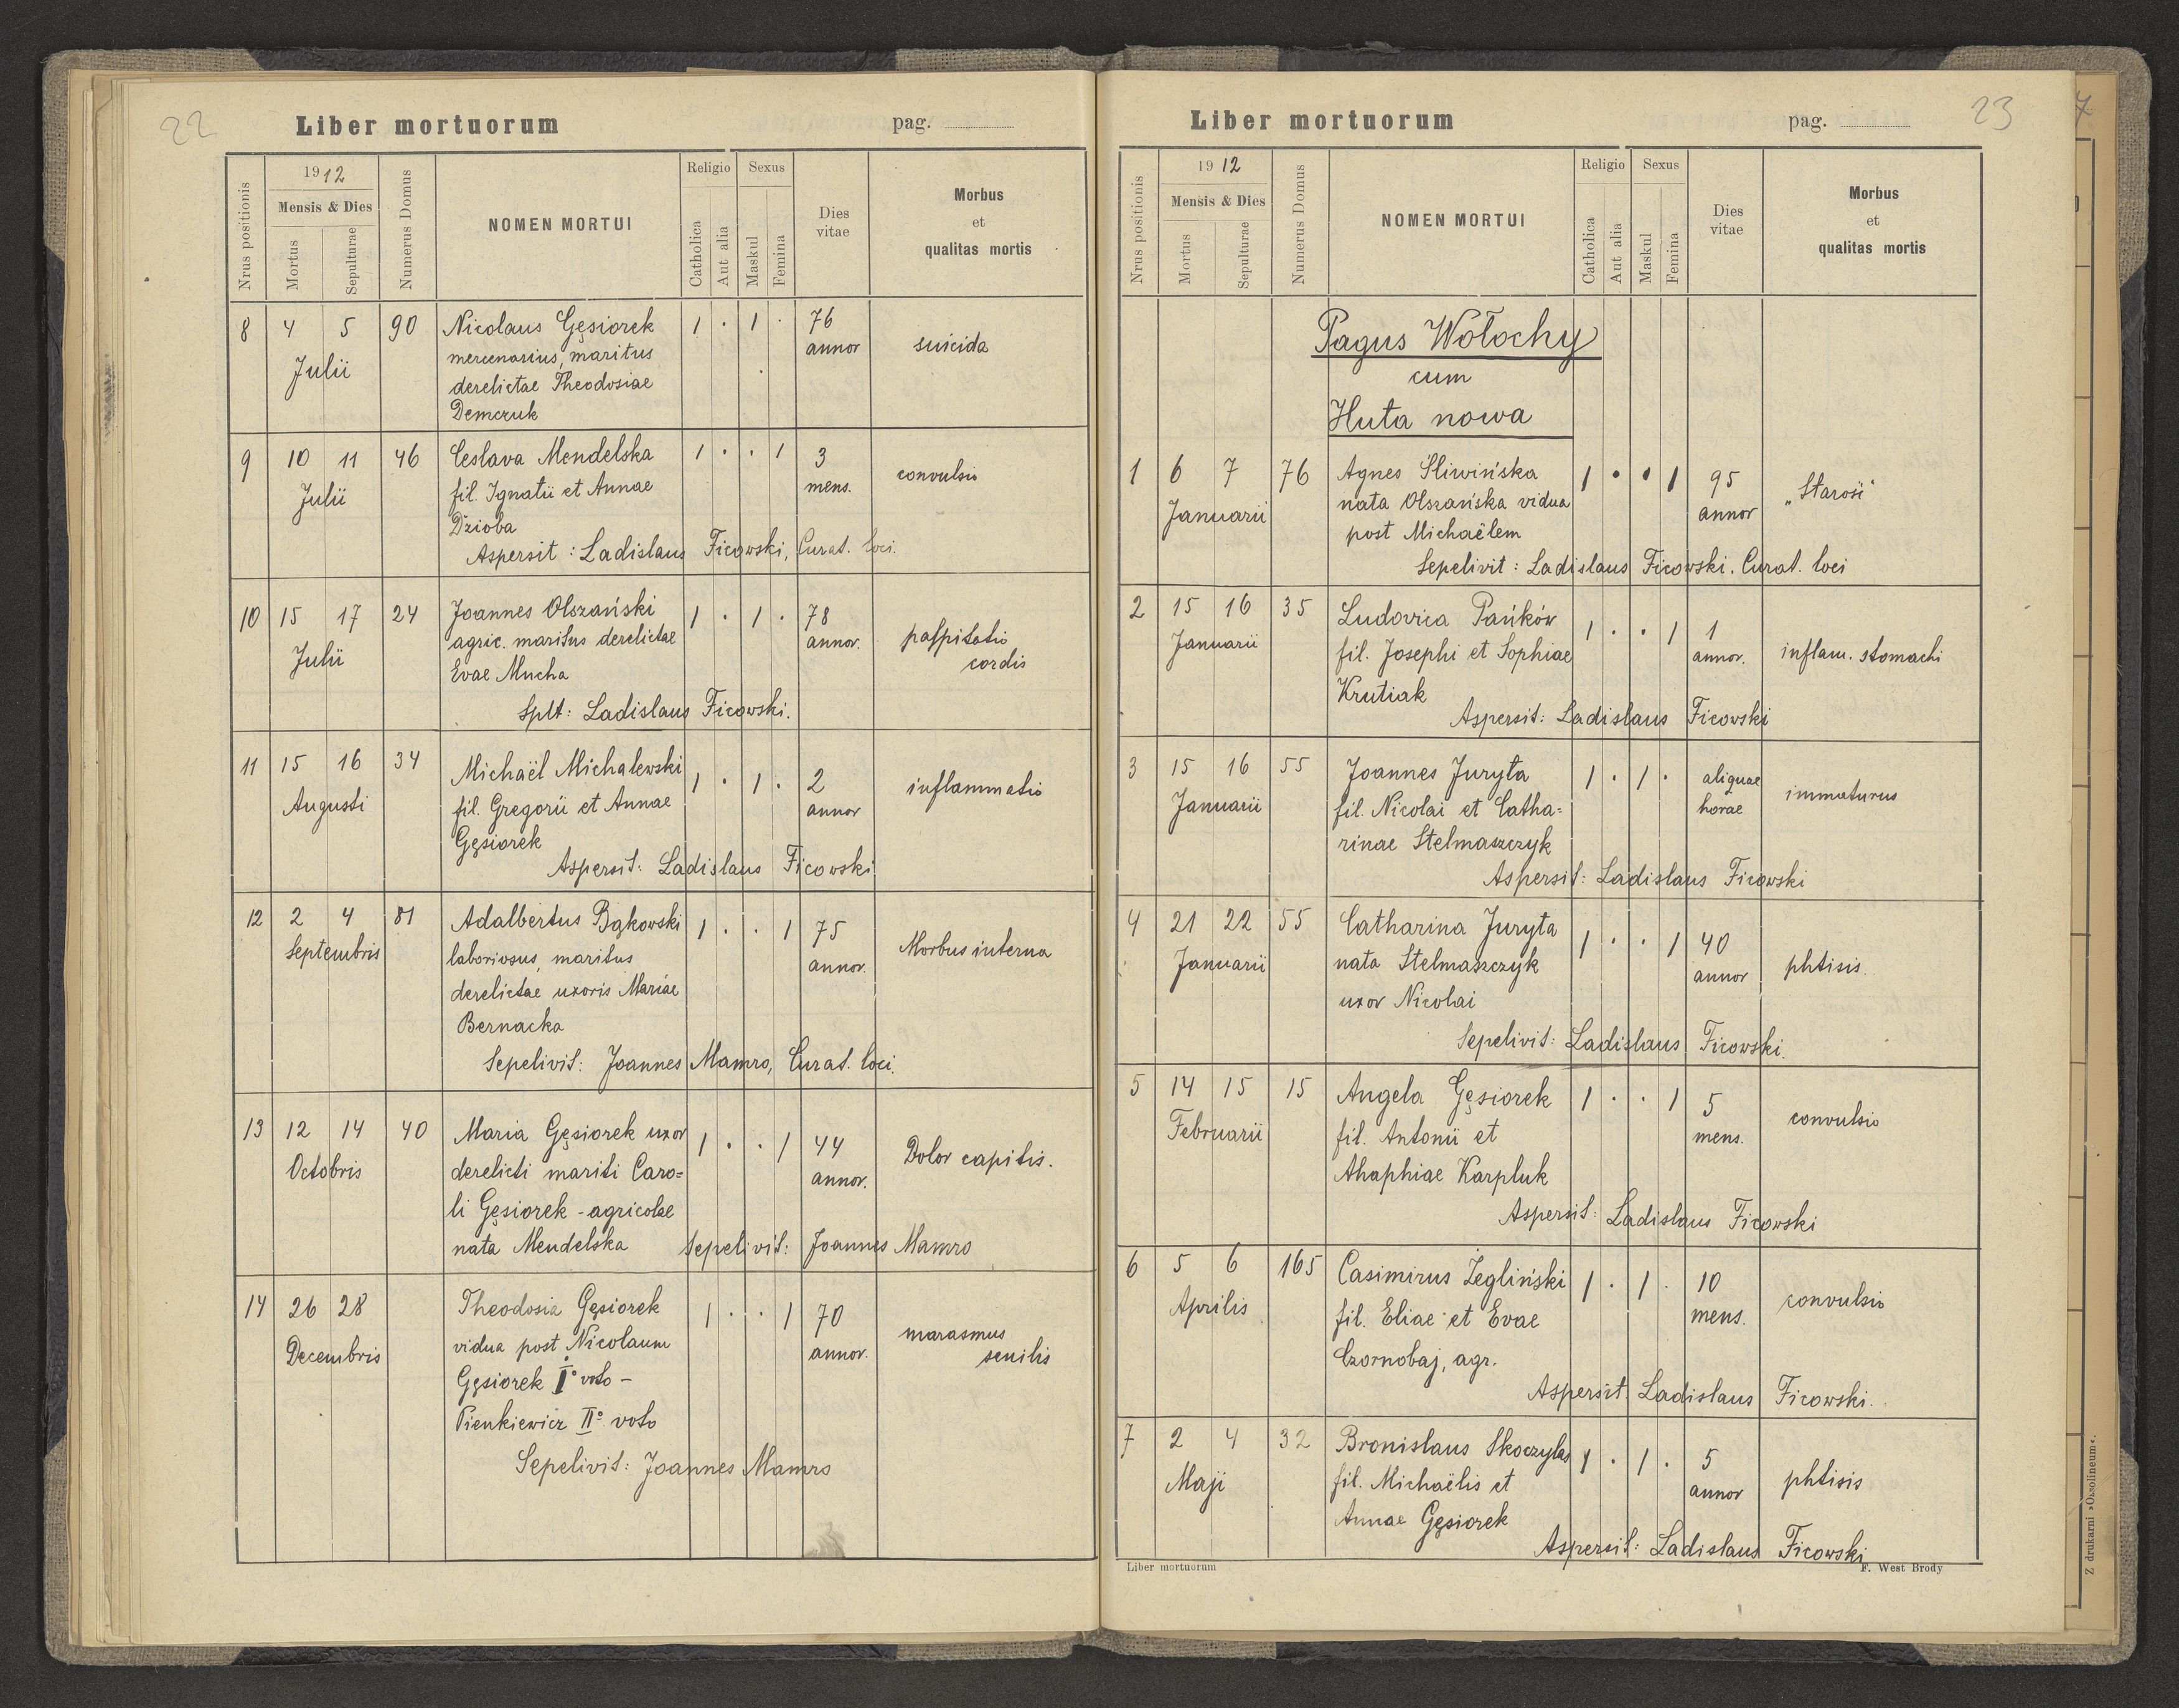 22
Liber mortuorum pag.
Nrus positionis
1912
Mensis & Dies
Mortus
Sepulturae
Numerus Domus
NOMEN MORTUI
Religio
Catholica
Aut alia
Sexus
Maskul
Femina
Dies
vitae
Morbus
et
qualitas mortis
8 4 5 90 Nicolaus Gęsiorek 1 . 1 . 76
Julii mercenarius, maritus annor suicida
derelictae Theodosiae
Demczuk
9 10 11 46 Ceslava Mendelska 1 . . 1 3
Julii fil. Ignatii et Annae mens. convulsio
Dzioba
Aspersit : Ladislaus Ficowski, Curat. loci.
10 15 17 24 Joannes Olszański 1 . 1 . 78
Julii agric. maritus derelictae annor. palpitatio
Evae Mucha cordis
Splt: Ladislaus Ficowski.
11 15 16 34 Michaël Michalewski 1 . 1 . 2
Augusti fil. Gregorii et Annae annor inflammatio
Gęsiorek
Aspersit: Ladislaus Ficowski
12 2 4 81 Adalbertus Bąkowski 1 . . 1 75
Septembris laboriosus, maritus annor. Morbus interna
derelictae uxoris Mariae
Bernacka
Sepelivit: Joannes Mamro, Curat. loci.
13 12 14 40 Maria Gęsiorek uxor 1 . . 1 44
Octobris derelicti mariti Caro= annor. Dolor capitis.
li Gęsiorek - agricolae
nata Mendelska Sepelivit: Joannes Mamro
14 26 28 Theodosia Gęsiorek 1 . . 1 70
Decembris vidua post Nicolaum annor. marasmus
Gęsiorek I° voto - senilis
Pienkiewicz II° voto
Sepelivit: Joannes Mamro
23
Liber mortuorum pag.
Nrus positionis
1912
Mensis & Dies
Mortus
Sepulturae
Numerus Domus
NOMEN MORTUI
Religio
Catholica
Aut alia
Sexus
Maskul
Femina
Dies
vitae
Morbus
et
qualitas mortis
Pagus Wołochy
cum
Huta nowa
1 6 7 76 Agnes Śliwińska 1 . . 1 95
Januarii nata Olszańska vidua annor „Starość"
post Michaëlem
Sepelivit : Ladislaus Ficowski. Curat. loci
2 15 16 35 Ludovica Pańków 1 . . 1 1
Januarii fil. Josephi et Sophiae annor. inflam. stomachi
Krutiak
Aspersit: Ladislaus Ficowski
3 15 16 55 Joannes Juryta 1 . 1 . aliquae
Januarii fil. Nicolai et Catha= horae immaturus
rinae Stelmaszczyk
Aspersit: Ladislaus Ficowski
4 21 22 55 Catharina Juryta 1 . . 1 40
Januarii nata Stelmaszczyk annor phtisis.
uxor Nicolai
Sepelivit: Ladislaus Ficowski.
5 14 15 15 Angela Gęsiorek 1 . . 1 5
Februarii fil. Antonii et mens. convulsio
Ahaphiae Karpluk
Aspersit: Ladislaus Ficowski
6 5 6 165 Casimirus Żegliński 1 . 1 . 10
Aprilis fil. Eliae et Evae mens. convulsio
Czornobaj, agr.
Aspersit. Ladislaus Ficowski.
7 2 4 32 Bronislaus Skoczylas 1 . 1 . 5
Maji fil. Michaëlis et annor phtisis
Annae Gęsiorek
Aspersit: Ladislaus Ficowski
Liber mortuorum F. West Brody
Z drukarni »Ossolineum«.
7